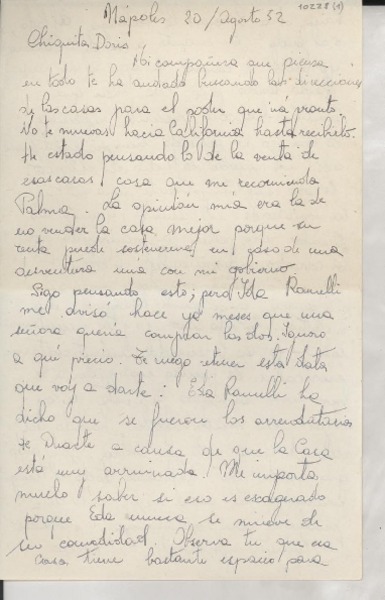 10228 (1)
Nápoles 20/Agosto 52
Chiquita Doris:
Mi compañera que piensa
en todo te ha andado buscando las direcciones
de las casas para el poder que irá pronto.
No te muevas hacia California hasta recibirlo.
He estado pensando lo de la venta de
esas casas, cosa que me recomienda
Palma. La opinión mía era la de
no vender la casa mejor porque su
renta puede sostenerme en caso de una
desventura mía con mi gobierno.
Sigo pensando esto; pero Ida Ramelli
me avisó hace ya meses que una
señora quería comprar las dos. Ignoro
a qué precio. Te ruego retener esta data
que voy a darte: Eda Ramelli ha
dicho que se fueron los arrendatarios
de Duarte a causa de que la Casa
está muy arruinada. Me importa
mucho saber si eso es exagerado
porque Eda nunca se mueve de
su comodidad. Observa tú que esa
casa tiene bastante espacio para